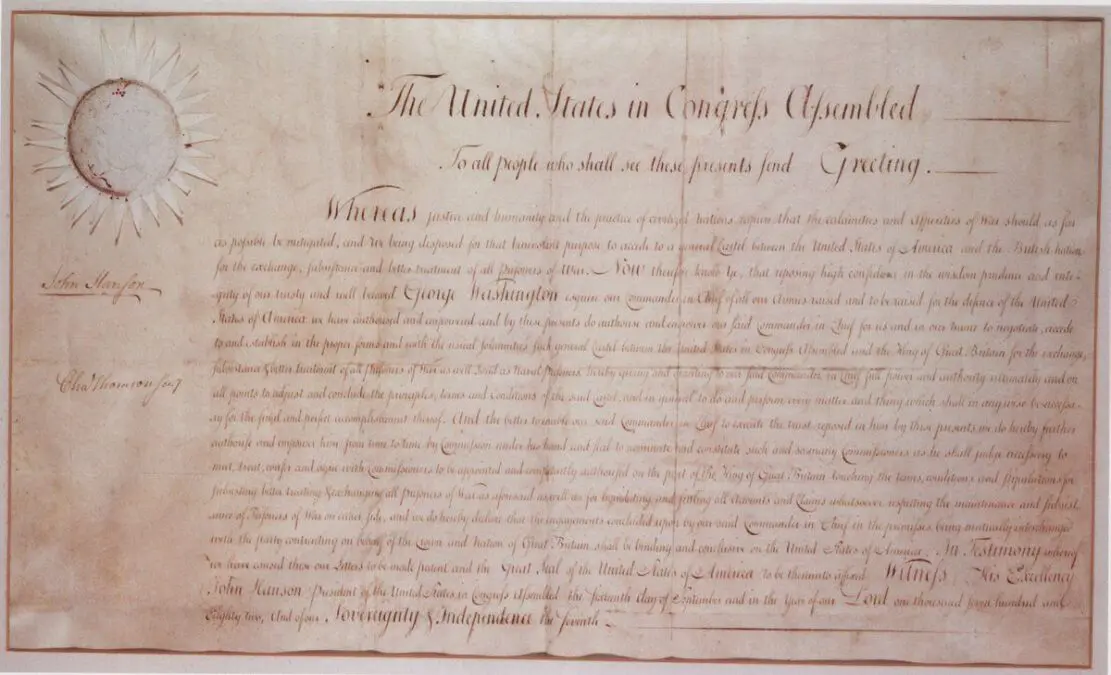 The United States in Congress Assembled
To all people who shall see these presents send Greeting.
Whereas justice and humanity and the practice of civilized nations require that the calamities and asperities of War should as far
as possible be mitigated, and we being disposed for that benevolent purpose to accede to a general Cartel between the United States of America and the British nation
for the exchange, subsistence and better treatment of all Prisoners of War. Now therefore know Ye, that reposing high confidence in the wisdom prudence and inte-
John Hanson
grity of our trusty and well beloved George Washington esquire our Commander in Chief of all our Armies raised and to be raised for the defence of the United
States of America we have authorised and empowered and by these presents do authorise and empower our said Commander in Chief for us and in our name to negotiate, accede
to and establish in the proper forms and with the usual solemnities such general Cartel between the United States in Congress Assembled and the King of Great Britain for the exchange,
Chas Thomson secy
subsistence & better treatment of all Prisoners of War as well land as Naval Prisoners, hereby giving and granting to our said Commander in Chief full power and authority ultimately and on
all points to adjust and conclude the principles, terms and conditions of the said Cartel, and in general to do and perform every matter and thing which shall in any wise be necessa-
ry for the final and perfect accomplishment thereof. And the better to enable our said Commander in Chief to execute the trust reposed in him by these presents we do hereby further
authorise and empower him from time to time by Commission under his hand and seal to nominate and constitute such and so many Commissioners as he shall judge necessary to
meet, treat, confer and agree with Commissioners to be appointed and competently authorised on the part of the King of Great Britain touching the terms, conditions and stipulations for
subsisting better treating & exchanging all Prisoners of War as aforesaid as well as for liquidating and settling all Accounts and Claims whatsoever respecting the maintenance and subsist
ance of Prisoners of War on either side, and we do hereby declare that the engagements concluded upon by our said Commander in Chief in the premises, being mutually interchanged
with the party contracting on behalf of the Crown and Nation of Great Britain shall be binding and conclusive on the United States of America. In Testimony whereof
we have caused these our Letters to be made patent and the Great Seal of the United States of America to be thereunto affixed. Witness His Excellency
John Hanson President of the United States in Congress Assembled the sixteenth day of September and in the Year of our Lord one thousand seven hundred and
Eighty two, And of our Sovereignty & Independence the seventh